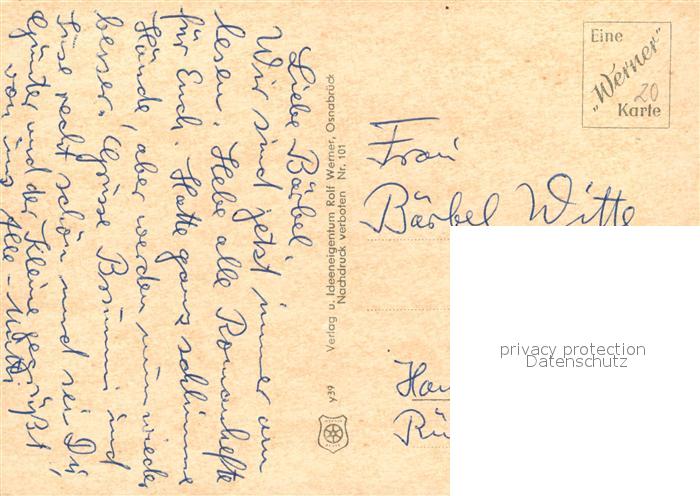 Liebe Bärbel,
Wir sind jetzt immer am
lesen. Hebe alle Romanhefte
für Euch. Hatte ganz schlimme
Hände, aber werden nun wieder
besser. Grüsse Brummi und
Suse recht schön und sei Du
Günter und der Kleine gegrüßt
von uns Alle - Mutti
Verlag u. Ideeneigentum Rolf Werner, Osnabrück
Nachdruck verboten Nr. 101
Y39
Eine
"Werner"
20
Karte
Frau
Bärbel Witte
privacy protection
Datenschutz
Han
Rü